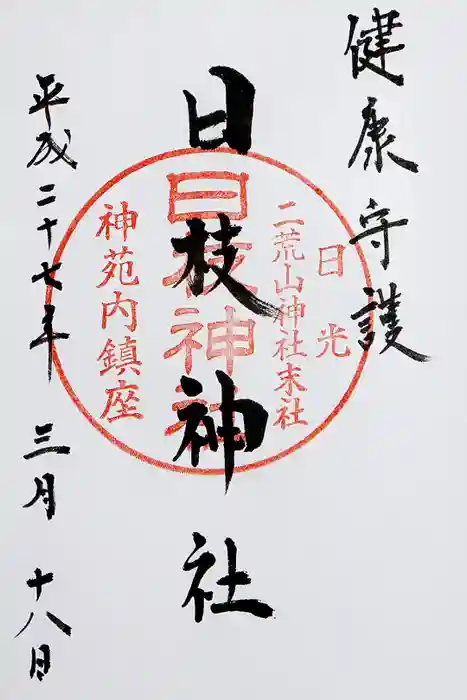 健康守護
日枝神社
平成二十七年 三月 十八日
日光
二荒山神社末社
日枝神社
神苑内鎮座